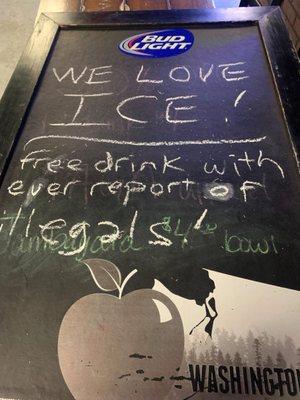 BUD LIGHT
WE LOVE
ICE!
free drink with
ever report of
illegals!
Jambalaya $4.00 bowl
WASHINGTON